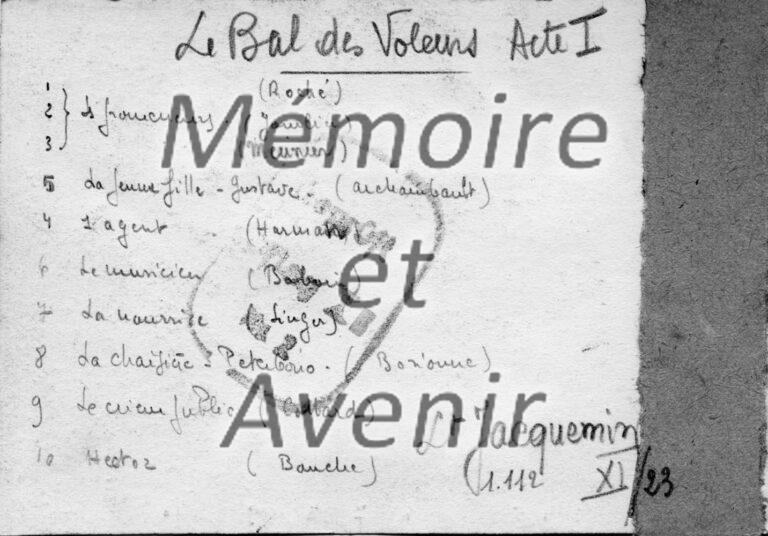 Le Bal des Voleurs Acte I
1 (Roché)
2
3 (Meunier)
5 La jeune fille - Gustave. (Archambault)
4 1 agent (Harmann)
6 Le musicien (Barbuin)
7 La nourrice (Singer)
8 La chaisière - Peterbono. (
9 Le crieur public (
10 Hector (Bauche)
Lt Jacquemin
1.112 XI/23
Mémoire
et
Avenir